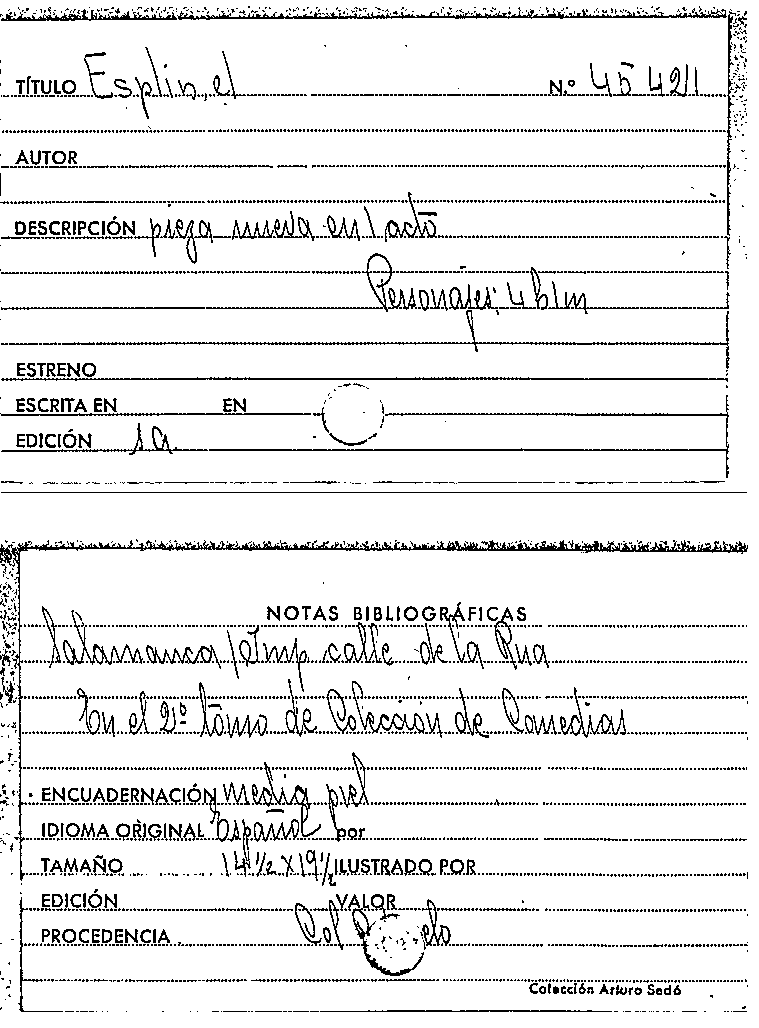 TÍTULO Esplin, el N.º 45 421
AUTOR
DESCRIPCIÓN pieza nueva en 1 acto
Personajes: 4 h 1 m
ESTRENO
ESCRITA EN EN
EDICIÓN s.a.
NOTAS BIBLIOGRÁFICAS
Salamanca Imp calle de la Rua
En el 2º tomo de Colección de Comedias
ENCUADERNACIÓN media piel
IDIOMA ORIGINAL Español por
TAMAÑO 14 1/2 X 19 1/2 ILUSTRADO POR
EDICIÓN VALOR
PROCEDENCIA Col
Colección Arturo Sedó